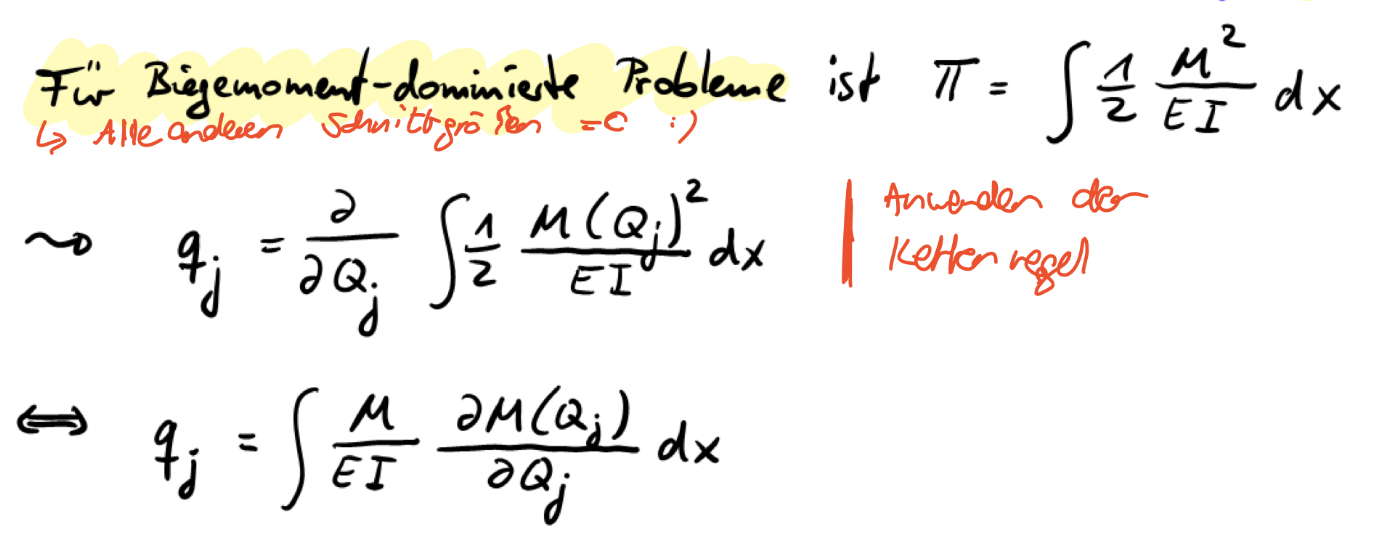 Für Biegemoment-dominierte Probleme ist π = ∫ 1/2 M²/EI dx
↳ Alle anderen Schnittgrößen =0 :)
⤳ q_j = ∂/∂Q_j ∫ 1/2 M(Q_j)²/EI dx | Anwenden der
Kettenregel
⟺ q_j = ∫ M/EI ∂M(Q_j)/∂Q_j dx